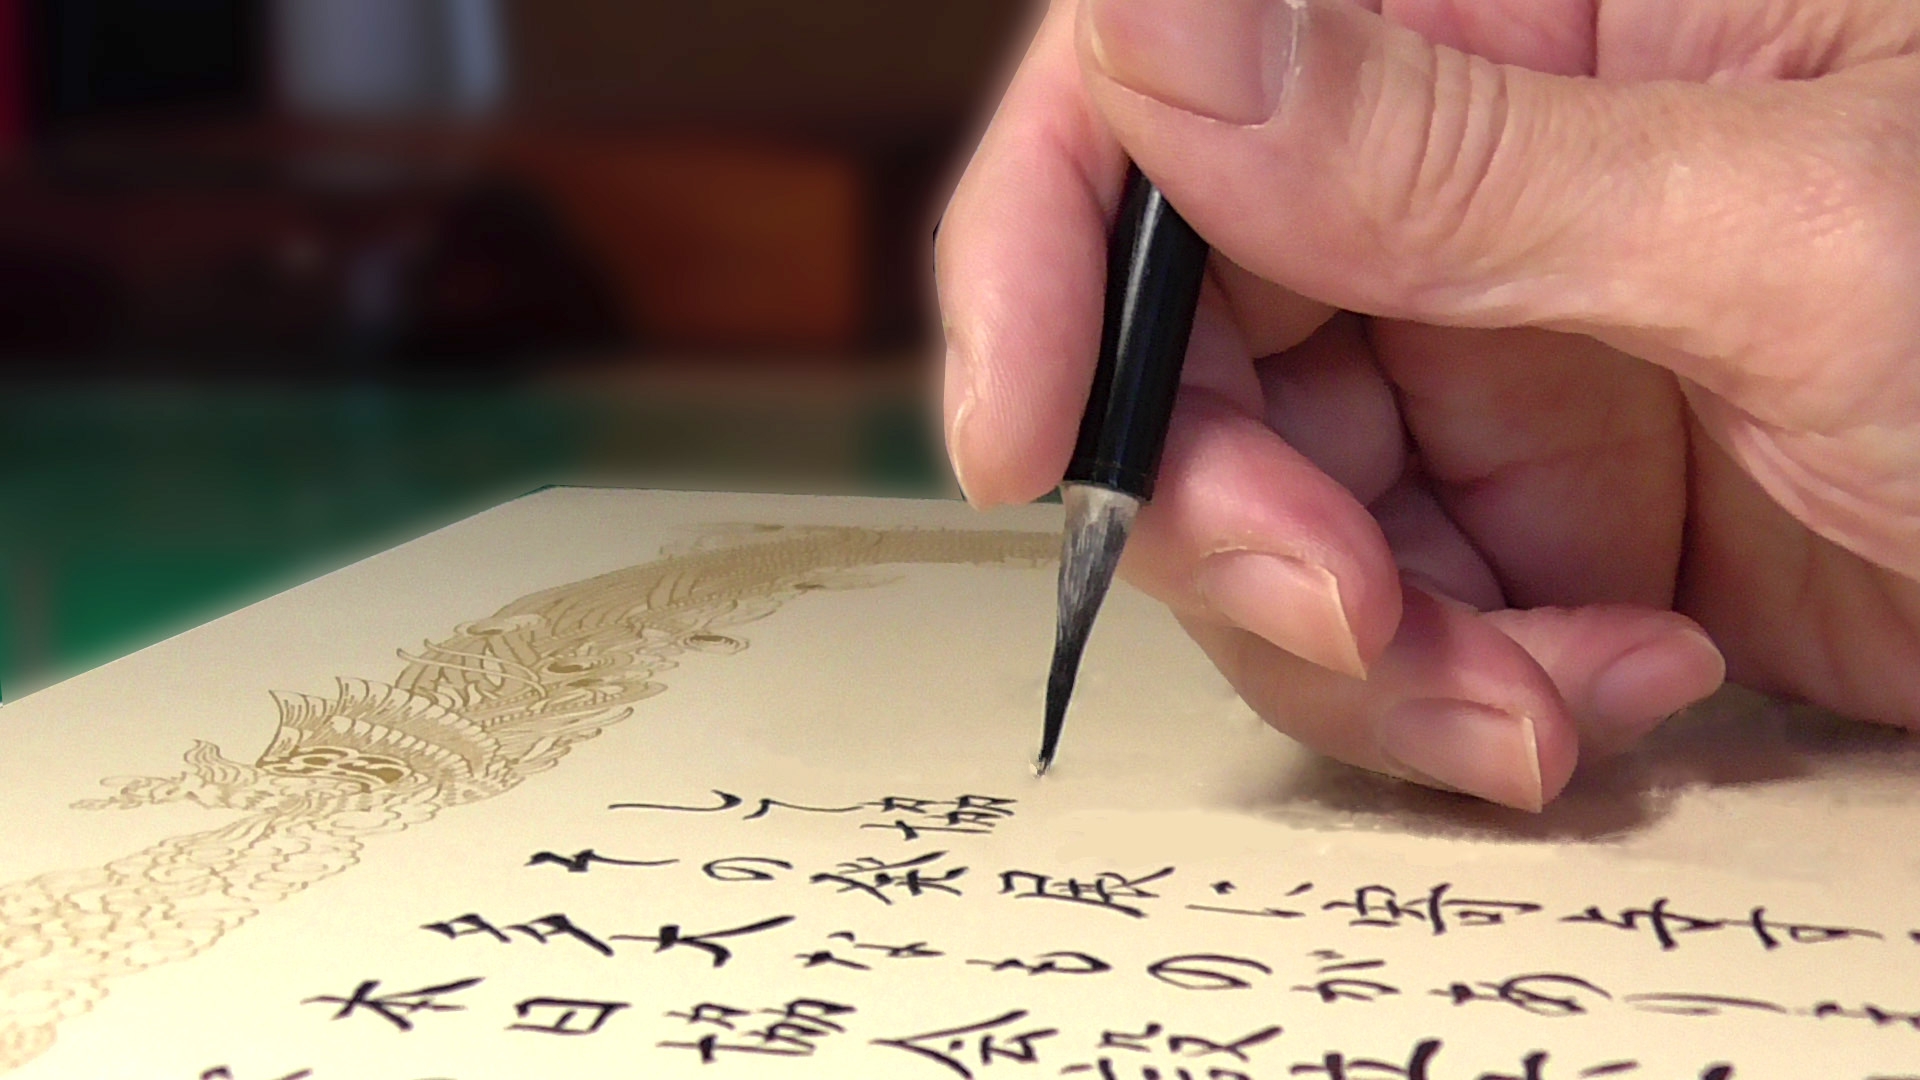 して協
その発展に寄与する
多大なものがありま
本日協会設立